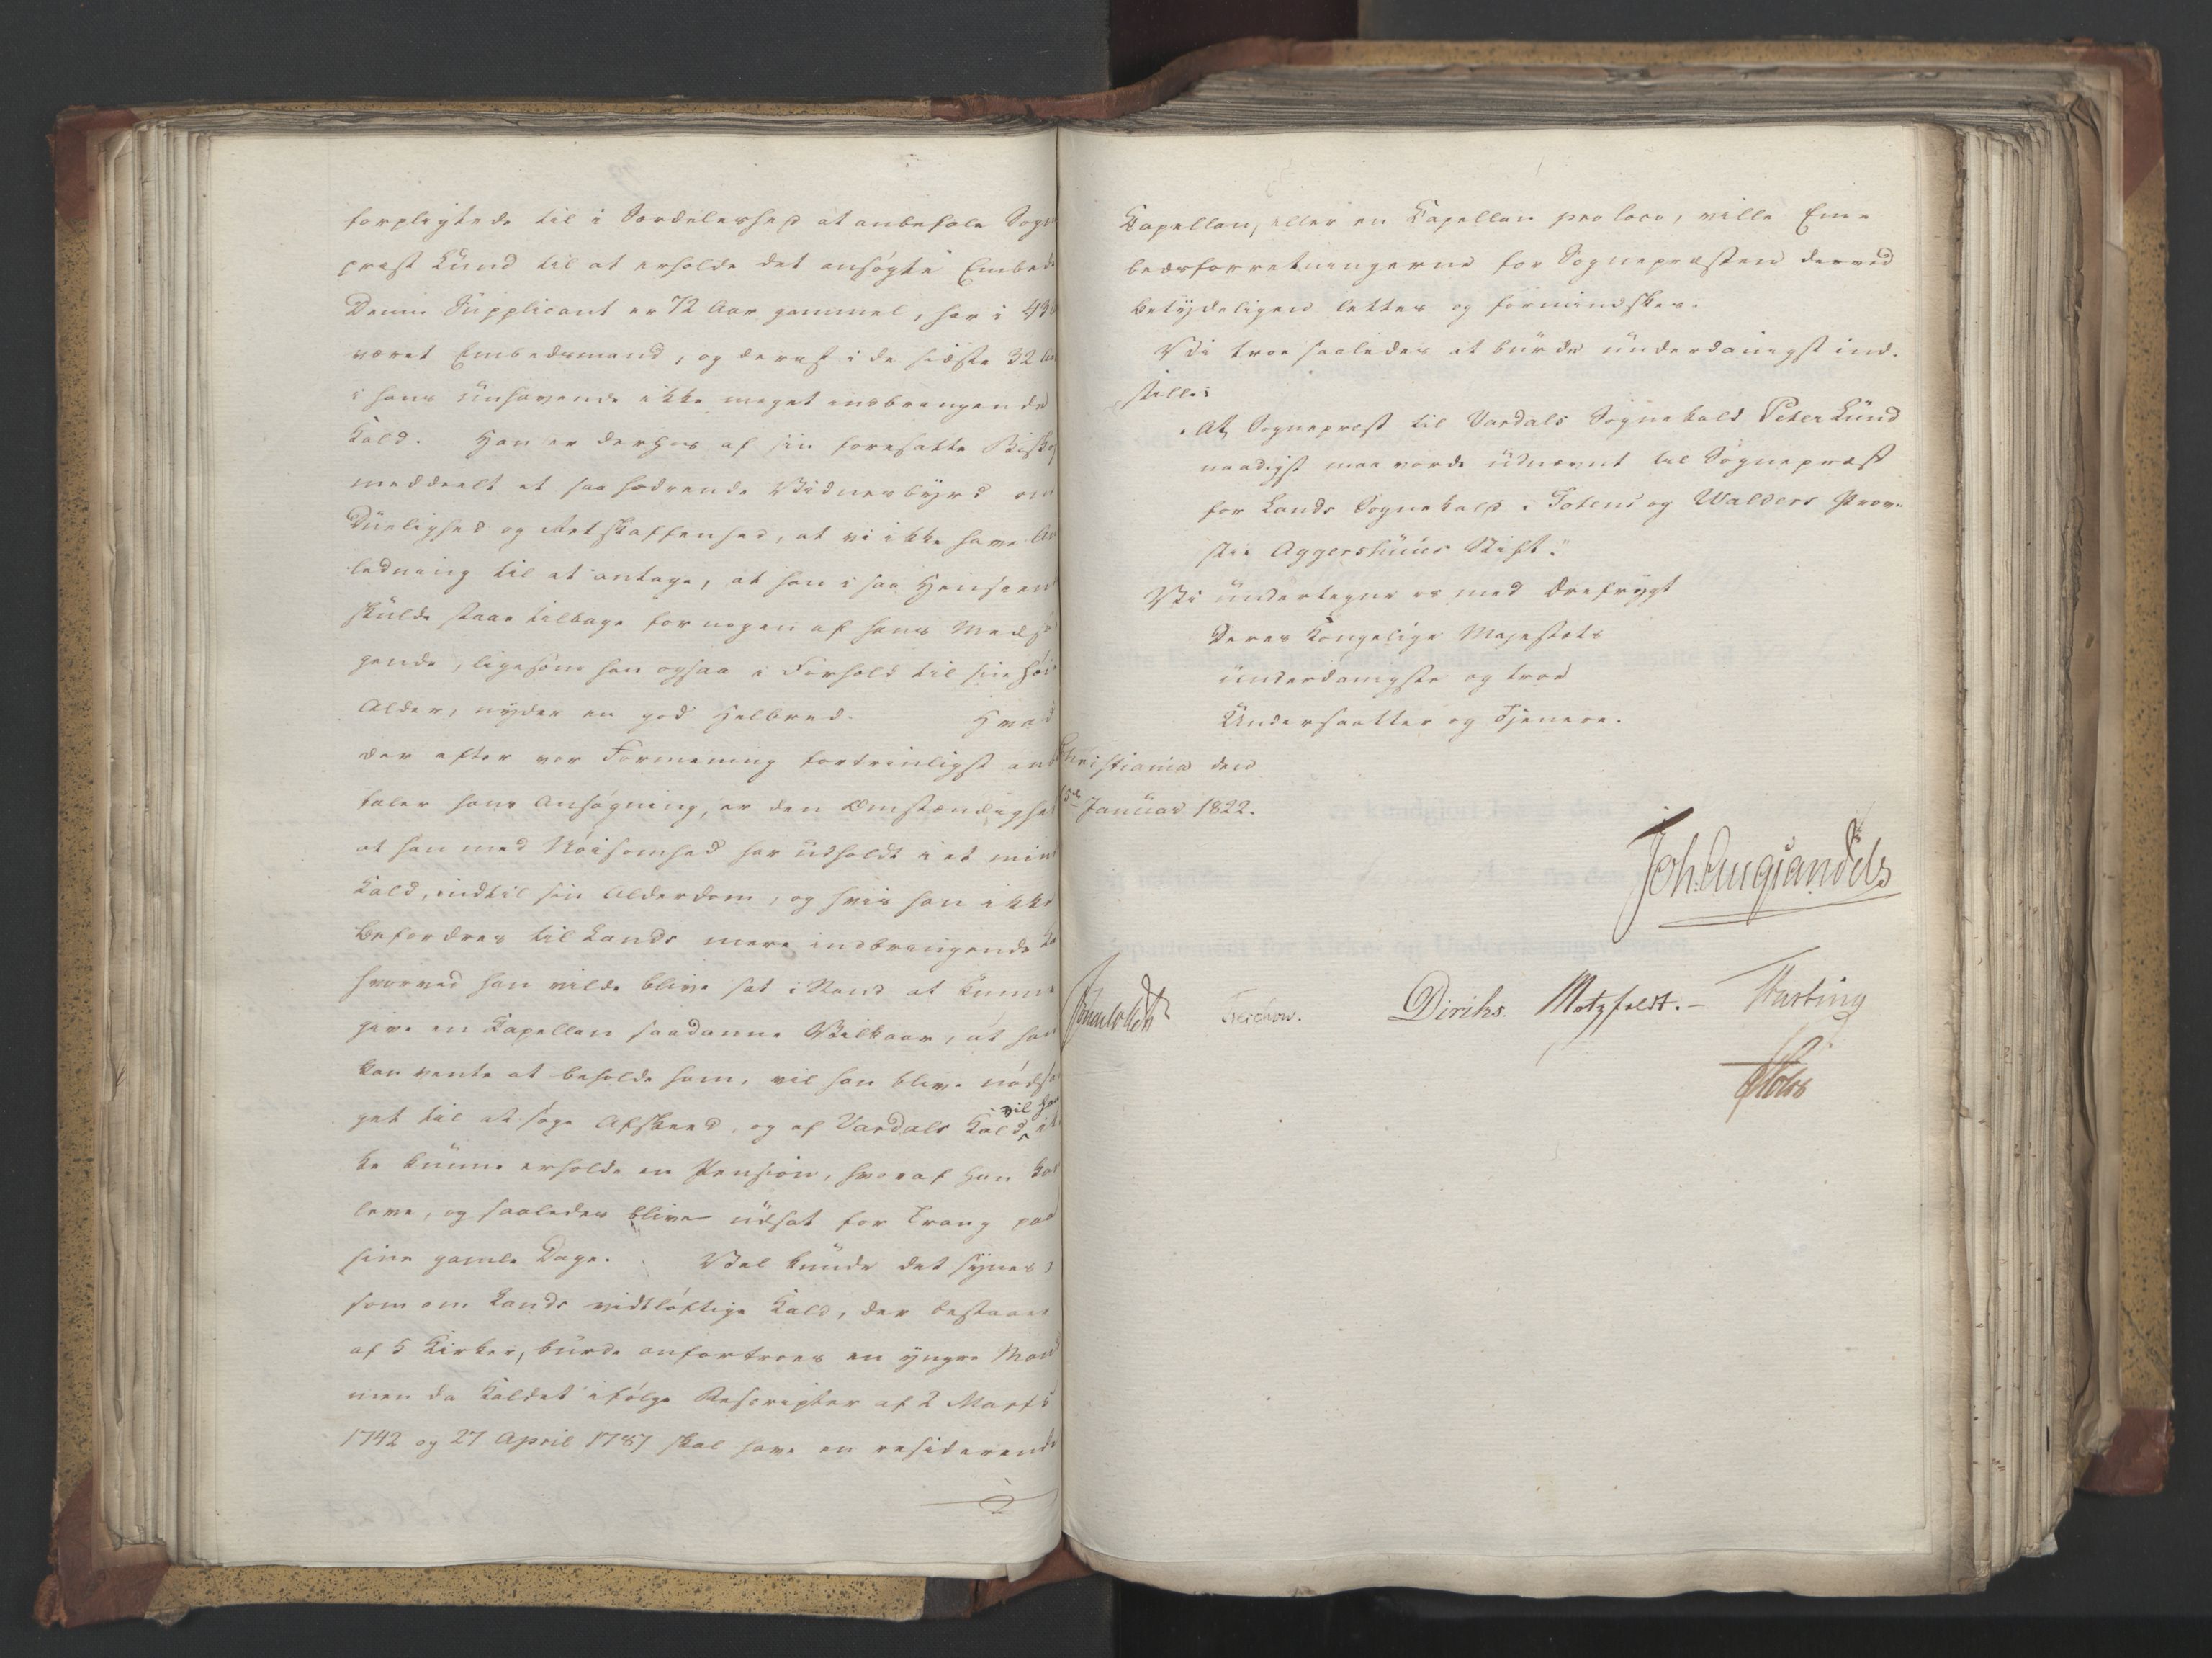 forpligtede til i Særdeleshed at anbefale Sogne
præst Lund til at erholde det ansøgte Embede
Denne Supplicant er 72 Aar gammel, har i 43
været Embedsmand, og deraf i de sidste 32 Aar
i hans iinhavende ikke meget indbringende
Kald. Han er derhos af sin foresatte Biskop
meddeelt et saa hædrende Vidnesbyrd om
Duelighed og Retskaffenhed, at vi ikke have An
ledning til at antage, at han i saa Henseende
skulde staae tilbage for nogen af hans Medsø
gende, ligesom han ogsaa i Forhold til sin høie
Alder, nyder en god Helbred. Hvad
der efter vor Formening fortrinligst anbe
faler hans Ansøgning, er den Omstændighed
at han med Nøisomhed har udholdt i et mindre
Kald, indtil sin Alderdom, og hvis han ikke
befordres til Lands mere indbringende Ka
hvorved han vilde blive sat i Stand at kunne
give en Kapellan saadanne Vilkaar, at han
kan vente at beholde ham, vil han blive nødsa
get til at søge Afskeed, og af Vardals Kald vil han ik
ke kunne erholde en Pension, hvoraf han kan
leve, og saaledes blive udsat for Trang paa
sine gamle Dage. Vel kunde det synes,
som om Lands vidtløftige Kald, der bestaaer
af 5 Kirker, burde anfortroes en yngre Mand
men da Kaldet ifølge Rescripter af 2 Marts
1742 og 27 April 1787 skal have en residerende
Kapellan, eller en Kapellan pro loco, ville Em
bedsforretningerne for Sognepræsten derved
betydeligen lettes og formindskes.
Vi troe saaledes at burde underdanigst ind-
stille:
"At Sognepræst til Vardals Sognekald Peter Lund
naadigst maa vorde udnævnt til Sognepræst
for Lands Sognekald i Totens og Walders Prov-
stie Aggershuus Stift."
Vi undertegne os med Ærefrygt
Deres Kongelige Majestæts
underdanigste og troe
Undersaatter og Tjenere.
Christiania den
15de Januar 1822.
Joh: Aug: Sandels
Sommerhielm Treschow. Diriks. Motzfeldt. Fasting
Holst